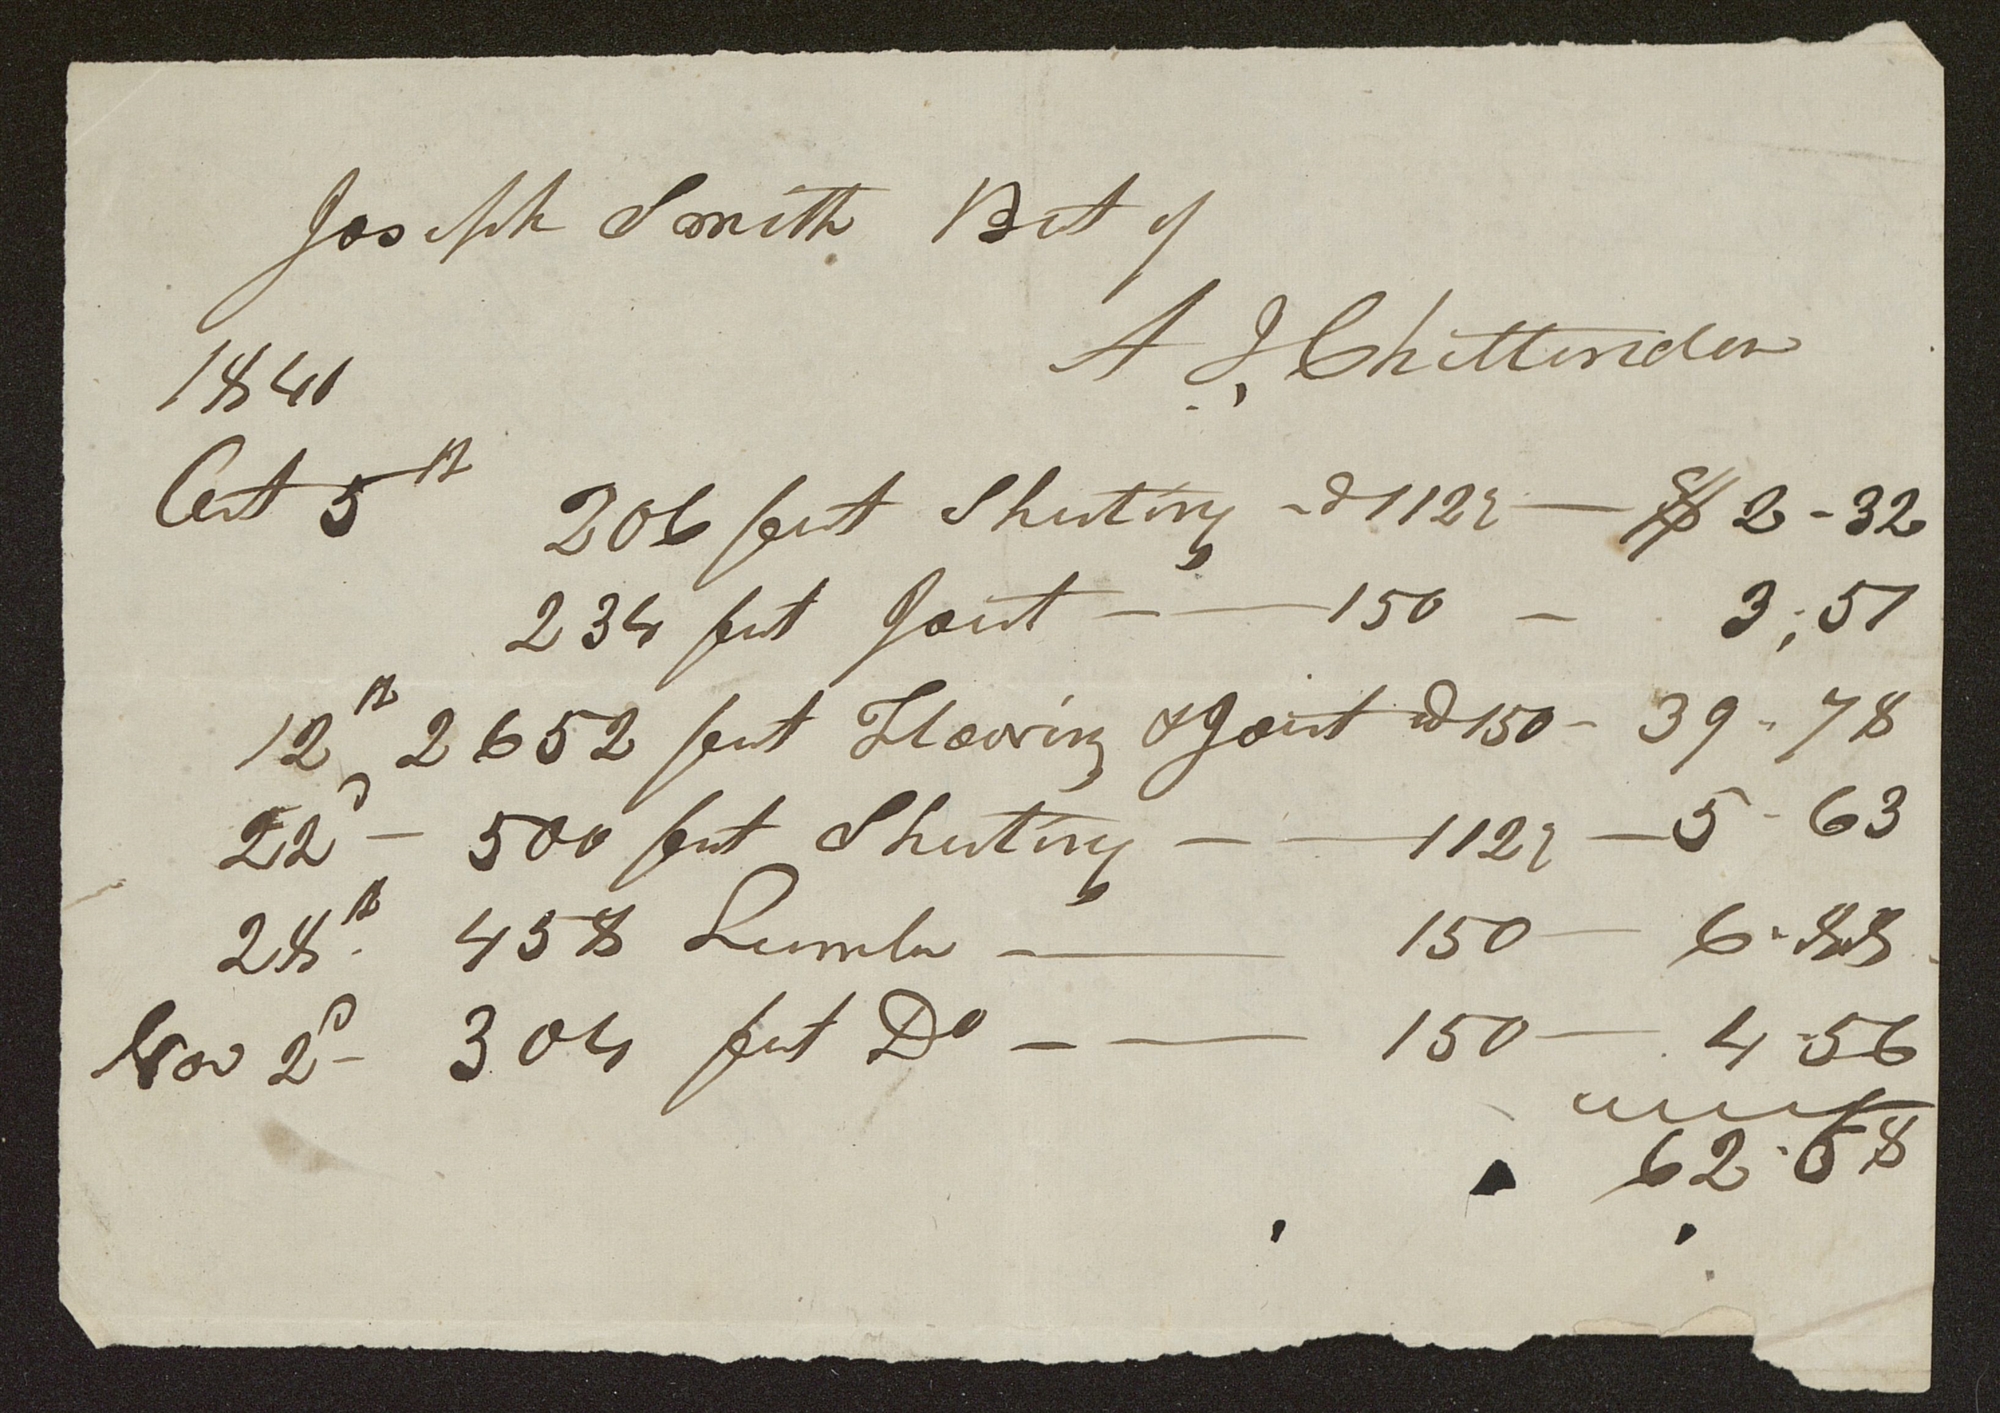 Joseph Smith Bot of
A J Chittenden
1840
Oct 5th
206 feet Sheeting - @ 112½ — $ 2 - 32
234 feet Joist — — 150 — 3,51
12th 2652 feet Flooring & Joist @ 150 - 39 - 78
22d — 500 feet Sheeting — — 112½ — 5 - 63
28th 458 Lumber — — 150 — 6 - 88
Nov 2d - 304 feet Do — — 150 — 4 - 56
62 - 68